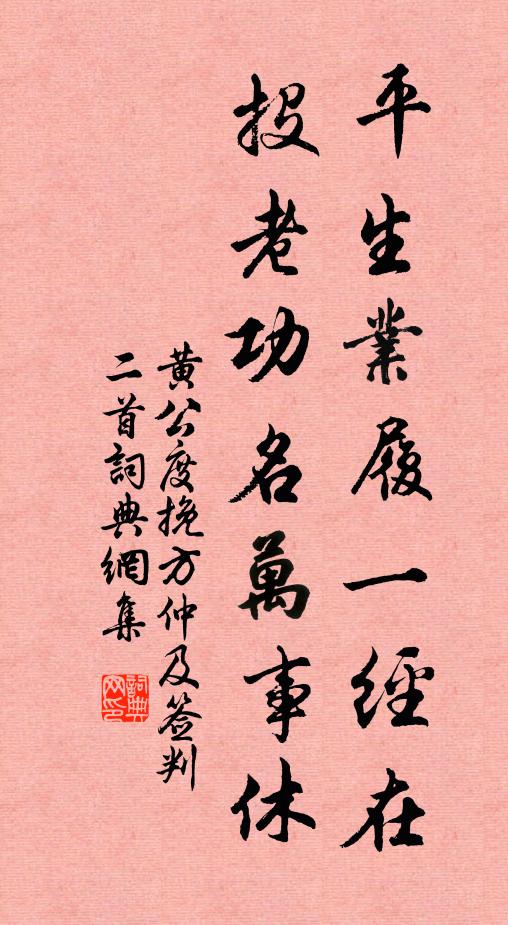 平生業履一經在
投老功名萬事休
黃公度挽方仲及簽判
二首詞典網集
詞典
网印